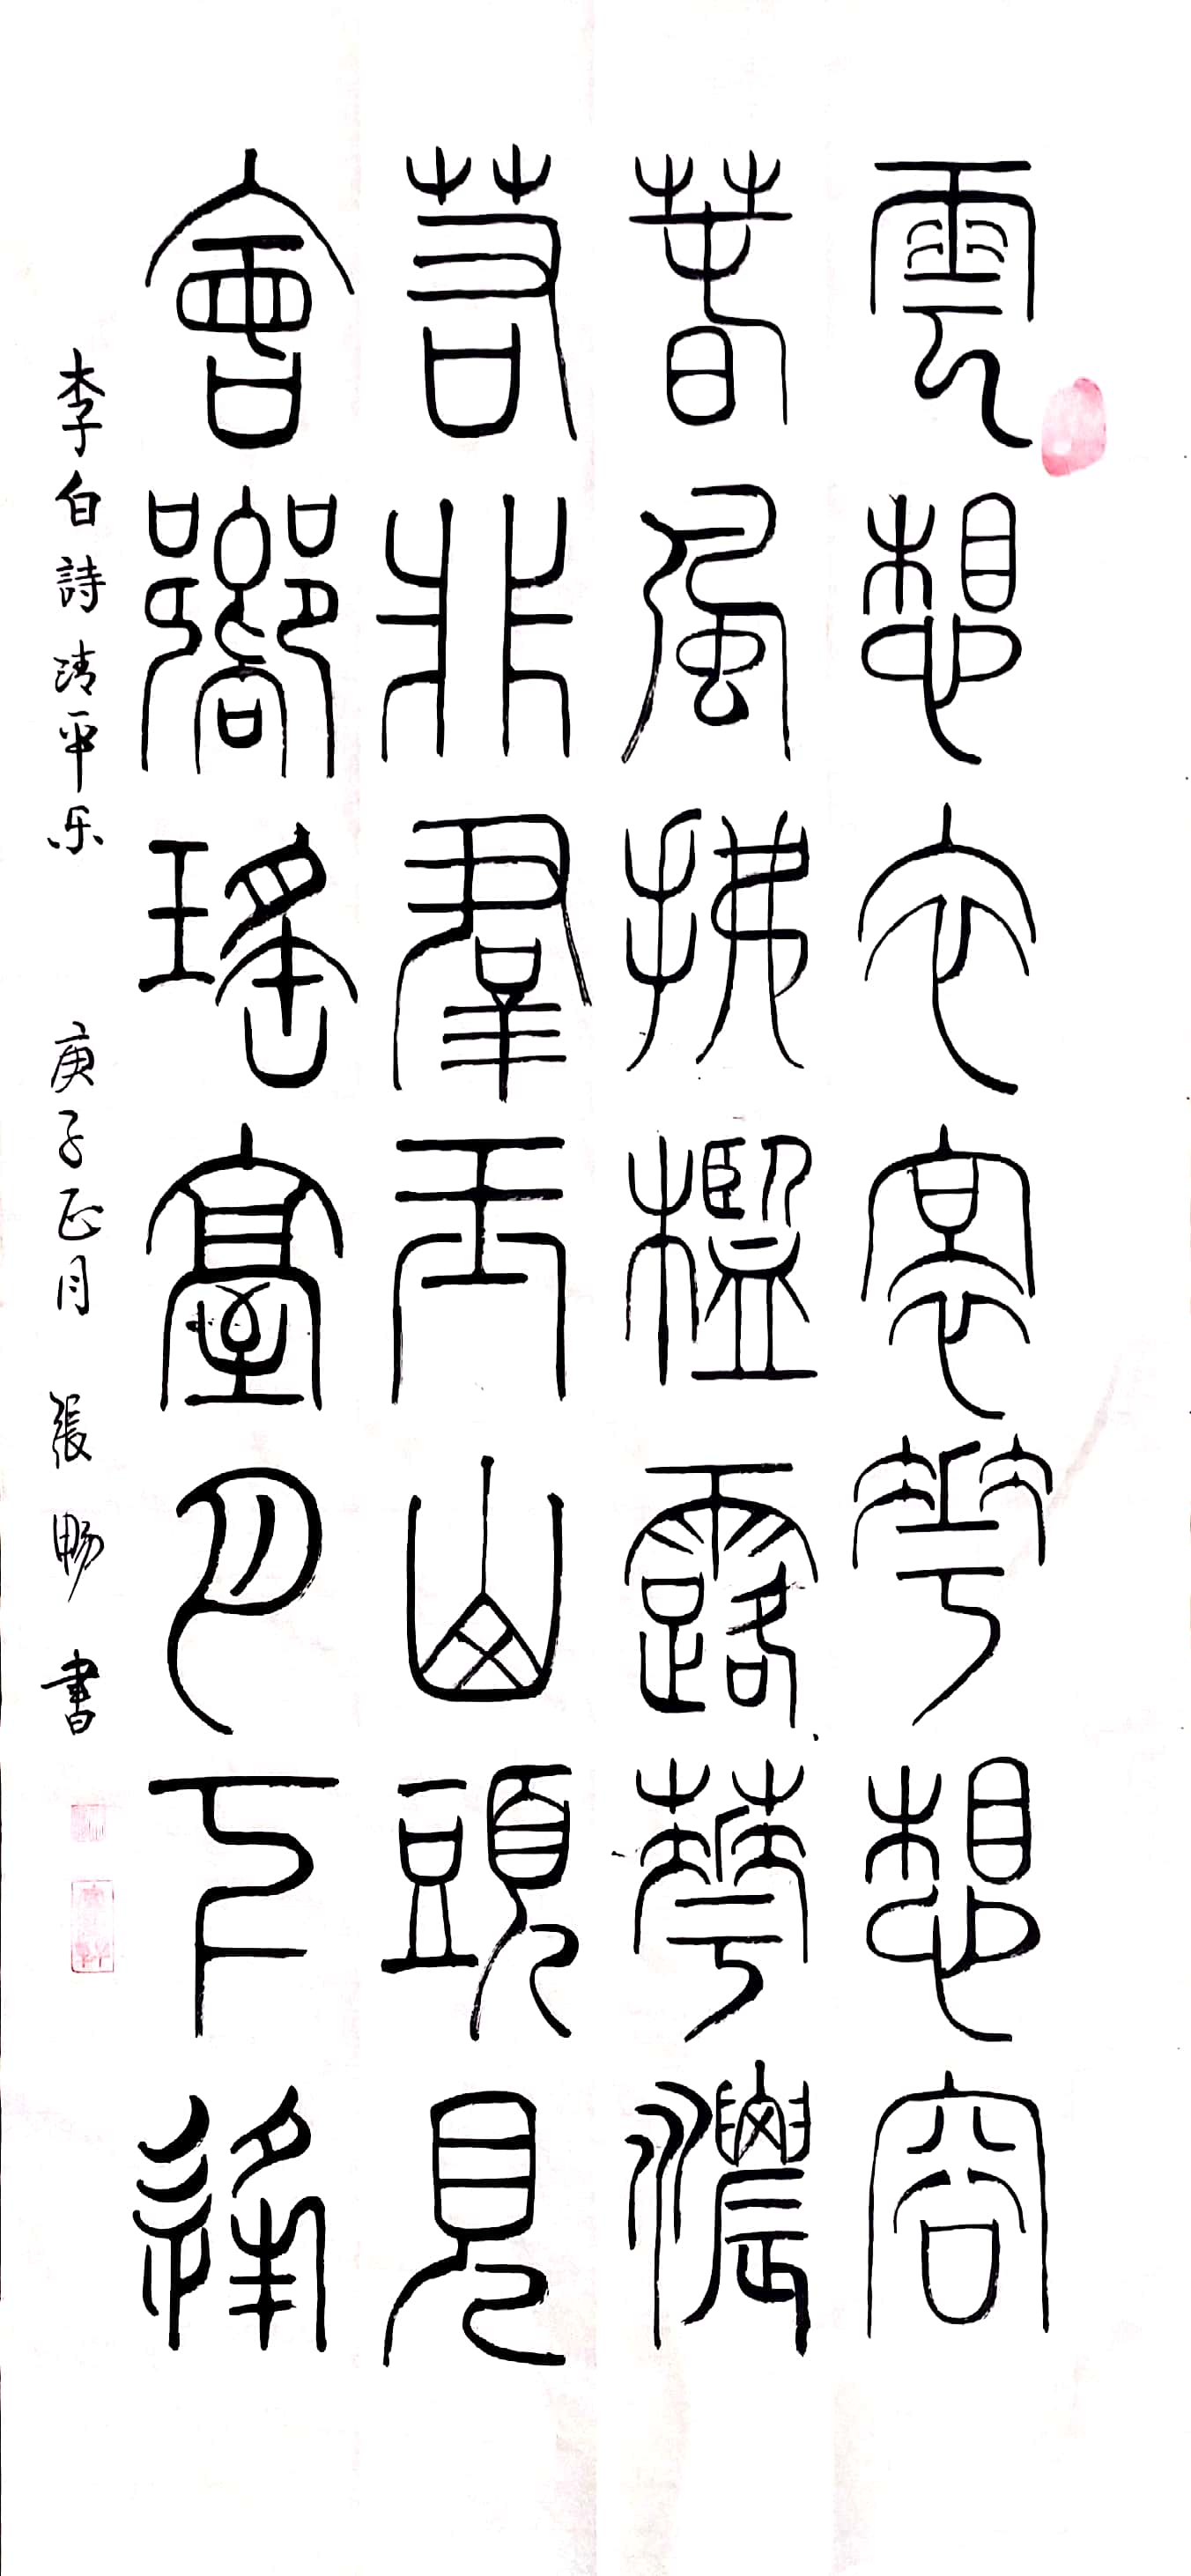 雲想衣裳花想容
春風拂檻露華濃
若非羣玉山頭見
會嚮瑤臺月下逢
李白詩清平乐 庚子正月 張暢書